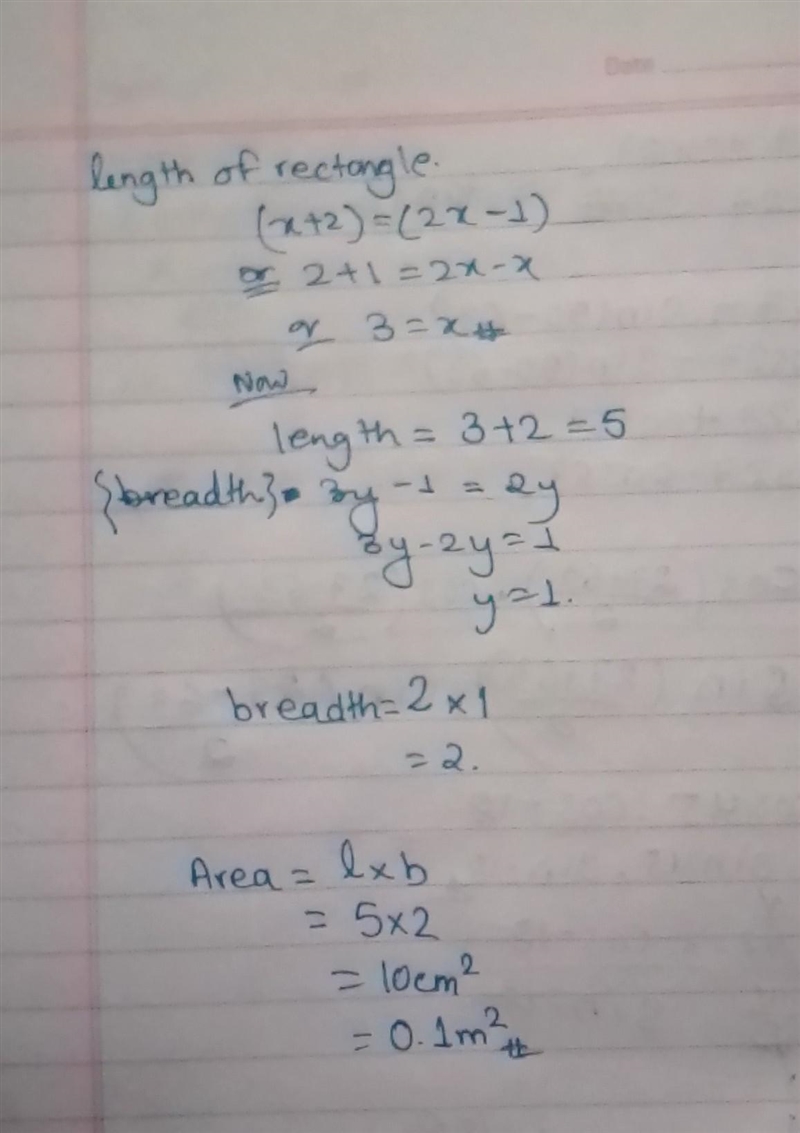 Date
length of rectangle.
(x+2)=(2x-1)
or 2+1=2x-x
or 3=x#
Now
length = 3+2=5
{breadth} 3y-1=2y
3y-2y=1
y=1.
breadth=2×1
=2.
Area = l×b
= 5×2
= 10cm²
= 0.1m²#